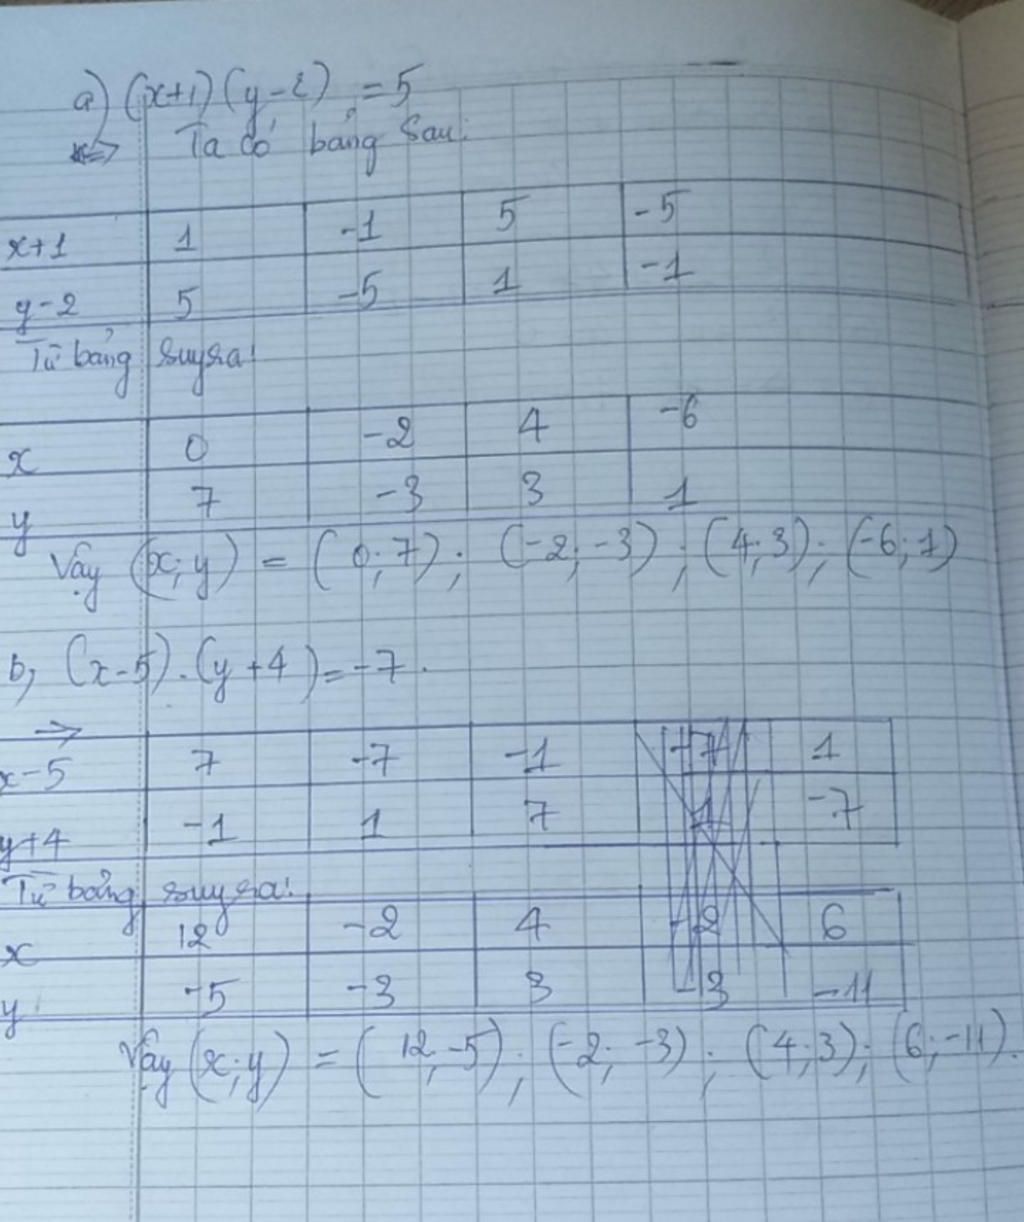 a) (x+1)(y-2) = 5
=> Ta có bảng sau:
x+1 1 -1 5 -5
y-2 5 -5 1 -1
Từ bảng suy ra:
x 0 -2 4 -6
y 7 -3 3 1
Vậy (x;y) = (0;7); (-2;-3); (4;3); (-6;1)
b, (x-5).(y+4)=-7.
→
x-5 7 -7 -1 1
y+4 -1 1 7 -7
Từ bảng suy ra:
x 12 -2 4 -2 6
y -5 -3 3 -3 -11
Vậy (x;y) = (12;-5); (-2; -3); (4;3); (6;-11).